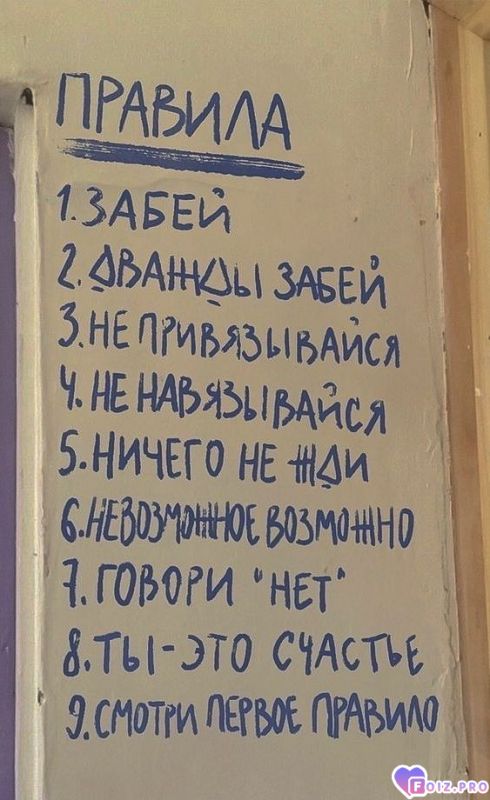 ПРАВИЛА
1. ЗАБЕЙ
2. ДВАЖДЫ ЗАБЕЙ
3. НЕ ПРИВЯЗЫВАЙСЯ
4. НЕ НАВЯЗЫВАЙСЯ
5. НИЧЕГО НЕ ЖДИ
6. НЕВОЗМОЖНОЕ ВОЗМОЖНО
7. ГОВОРИ "НЕТ"
8. ТЫ - ЭТО СЧАСТЬЕ
9. СМОТРИ ПЕРВОЕ ПРАВИЛО
FOIZ.PRO